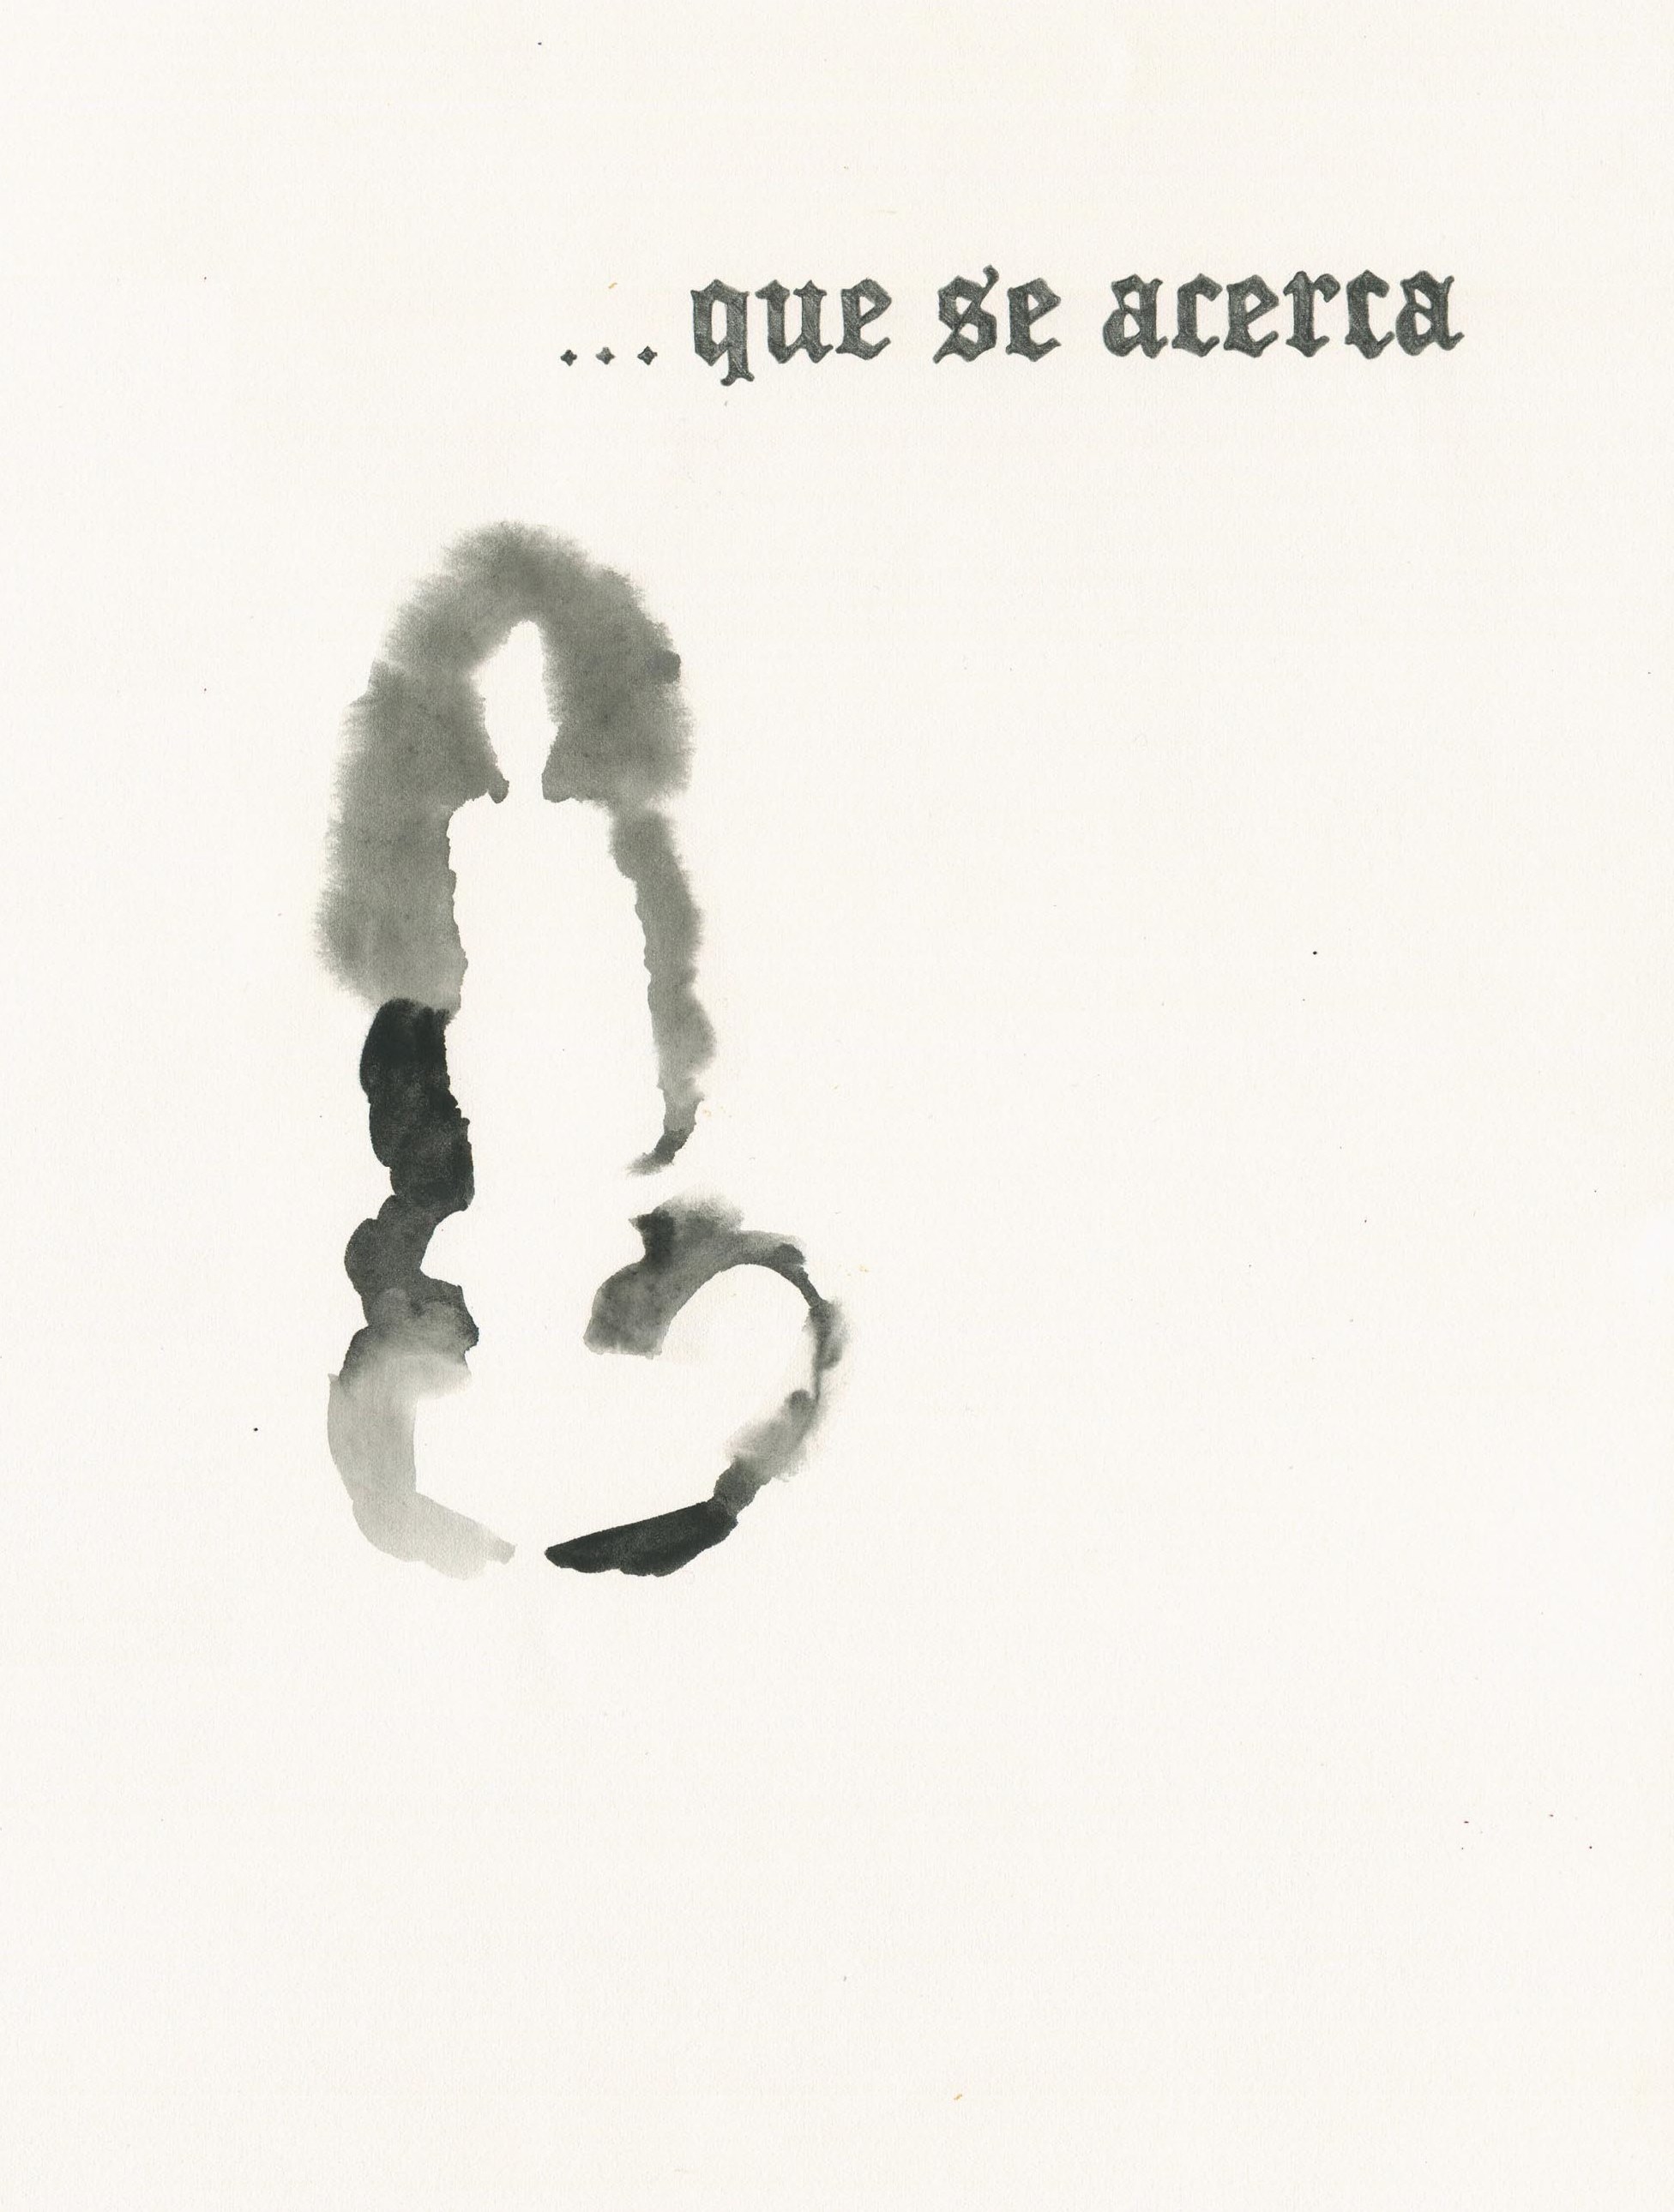 ...que se acerca